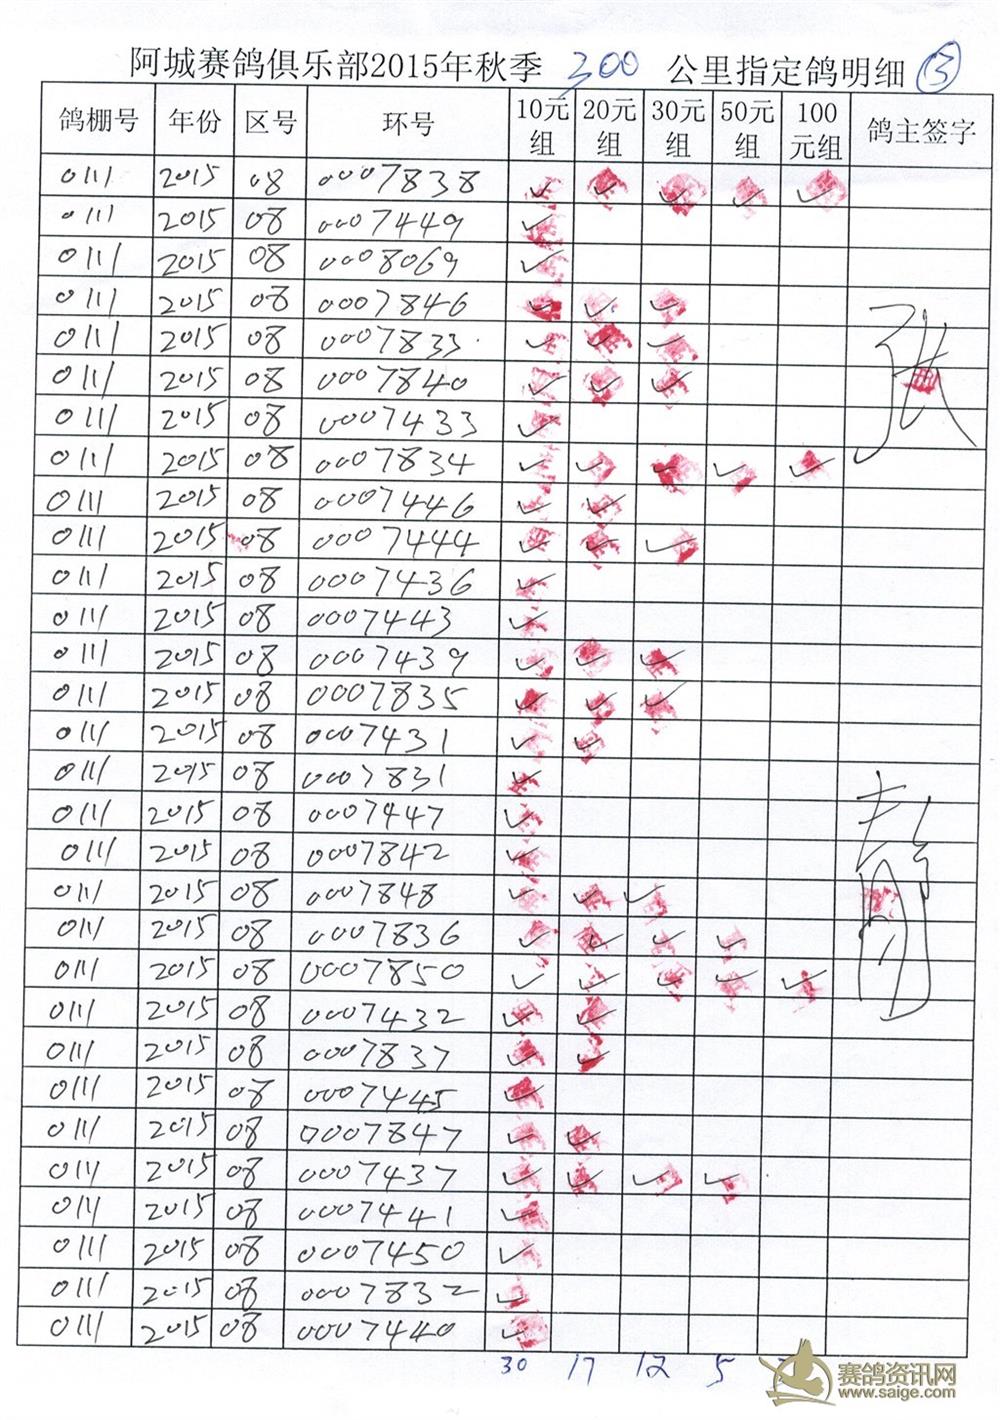 阿城赛鸽俱乐部2015年秋季 300 公里指定鸽明细 ③
鸽棚号 年份 区号 环号 10元组 20元组 30元组 50元组 100元组 鸽主签字
0111 2015 08 0007838 ✓ ✓ ✓ ✓ ✓
0111 2015 08 0007449 ✓
0111 2015 08 0008069 ✓
0111 2015 08 0007846 ✓ ✓ ✓
0111 2015 08 0007833 ✓ ✓ ✓
0111 2015 08 0007840 ✓ ✓ ✓
0111 2015 08 0007433 ✓
0111 2015 08 0007834 ✓ ✓ ✓ ✓ ✓
0111 2015 08 0007446 ✓ ✓
0111 2015 08 0007444 ✓ ✓ ✓
0111 2015 08 0007436 ✓
0111 2015 08 0007443 ✓
0111 2015 08 0007439 ✓ ✓ ✓
0111 2015 08 0007835 ✓ ✓ ✓
0111 2015 08 0007431 ✓ ✓
0111 2015 08 0007831 ✓
0111 2015 08 0007447 ✓
0111 2015 08 0007842 ✓
0111 2015 08 0007848 ✓ ✓ ✓
0111 2015 08 0007836 ✓ ✓ ✓ ✓
0111 2015 08 0007850 ✓ ✓ ✓ ✓ ✓
0111 2015 08 0007432 ✓ ✓
0111 2015 08 0007837 ✓ ✓
0111 2015 08 0007445 ✓
0111 2015 08 0007847 ✓ ✓
0111 2015 08 0007437 ✓ ✓ ✓ ✓
0111 2015 08 0007441 ✓
0111 2015 08 0007450 ✓
0111 2015 08 0007832 ✓
0111 2015 08 0007440 ✓
张
30 17 12 5
赛鸽资讯网
www.saige.com